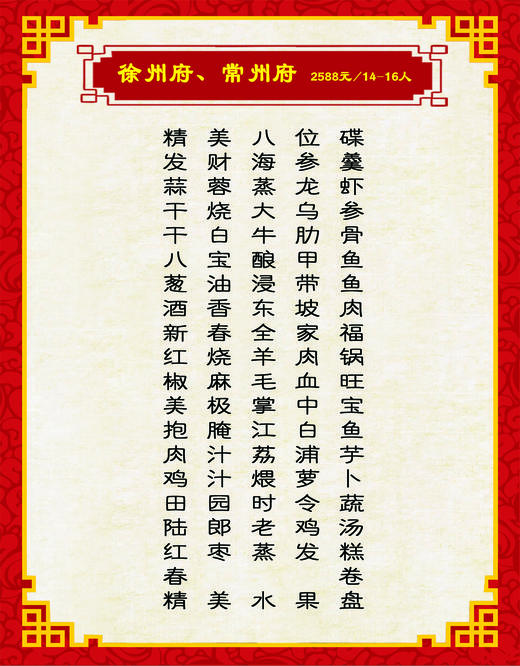 徐州府、常州府 2588元/14-16人
精美八位碟
发财海参羹
蒜蓉蒸龙虾
干烧大乌参
干白牛肋骨
八宝酿甲鱼
葱油浸带鱼
酒香东坡肉
新春全家福
红烧羊肉锅
椒麻毛血旺
美极掌中宝
抱腌江白鱼
肉汁荔浦芋
鸡汁煨萝卜
田园时令蔬
陆郎老鸡汤
红枣蒸发糕
春卷
精美水果盘